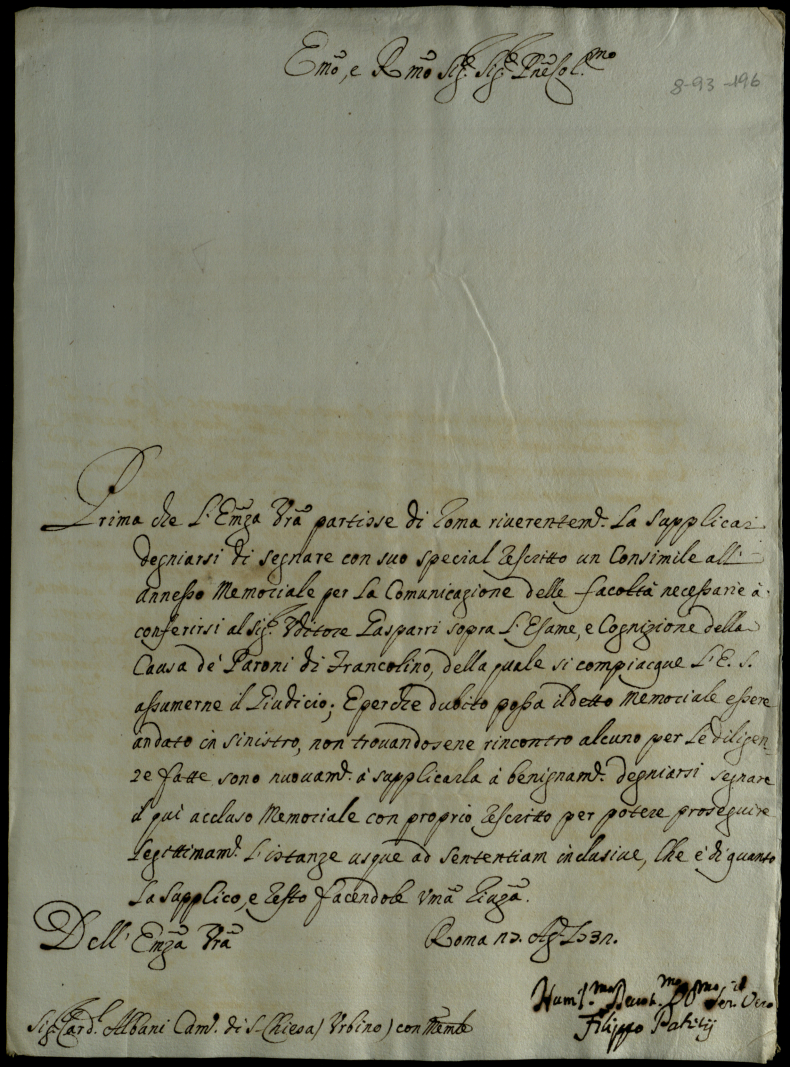 Emo, e Rmo Sig.r Sig.r Pne Col.mo
8-93-196
Prima che L'Emza Vra partisse di Roma riuerentem.te La supplicai
degniarsi di segnare con suo special Rescritto un Consimile all'
annesso Memoriale per La Comunicazione delle facoltà necessarie à
conferirsi al Sig.r Vditore Gasparri sopra L'Esame, e Cognizione della
Causa de' Baroni di Francolino, della quale si compiacque L'E. S.
assumerne il Giudicio; E perche dubito possa il detto Memoriale essere
andato in sinistro, non trouandosene rincontro alcuno per Le diligen-
ze fatte sono nuouam.te à supplicarla à benignam.te degniarsi segnare
il qui accluso Memoriale con proprio Rescritto per potere proseguire
Legittimam.te L'istanze usque ad sententiam inclusiue, Che è di quanto
La supplico, e Resto facendole Vma Riuza.
Dell' Emza Vra
Roma Ag.to
Hum.mo Deuot.mo Obmo Ser.
Filippo
Sig.r Card.l Albani Cam.o di S. Chiesa / Vrbino / con Memle